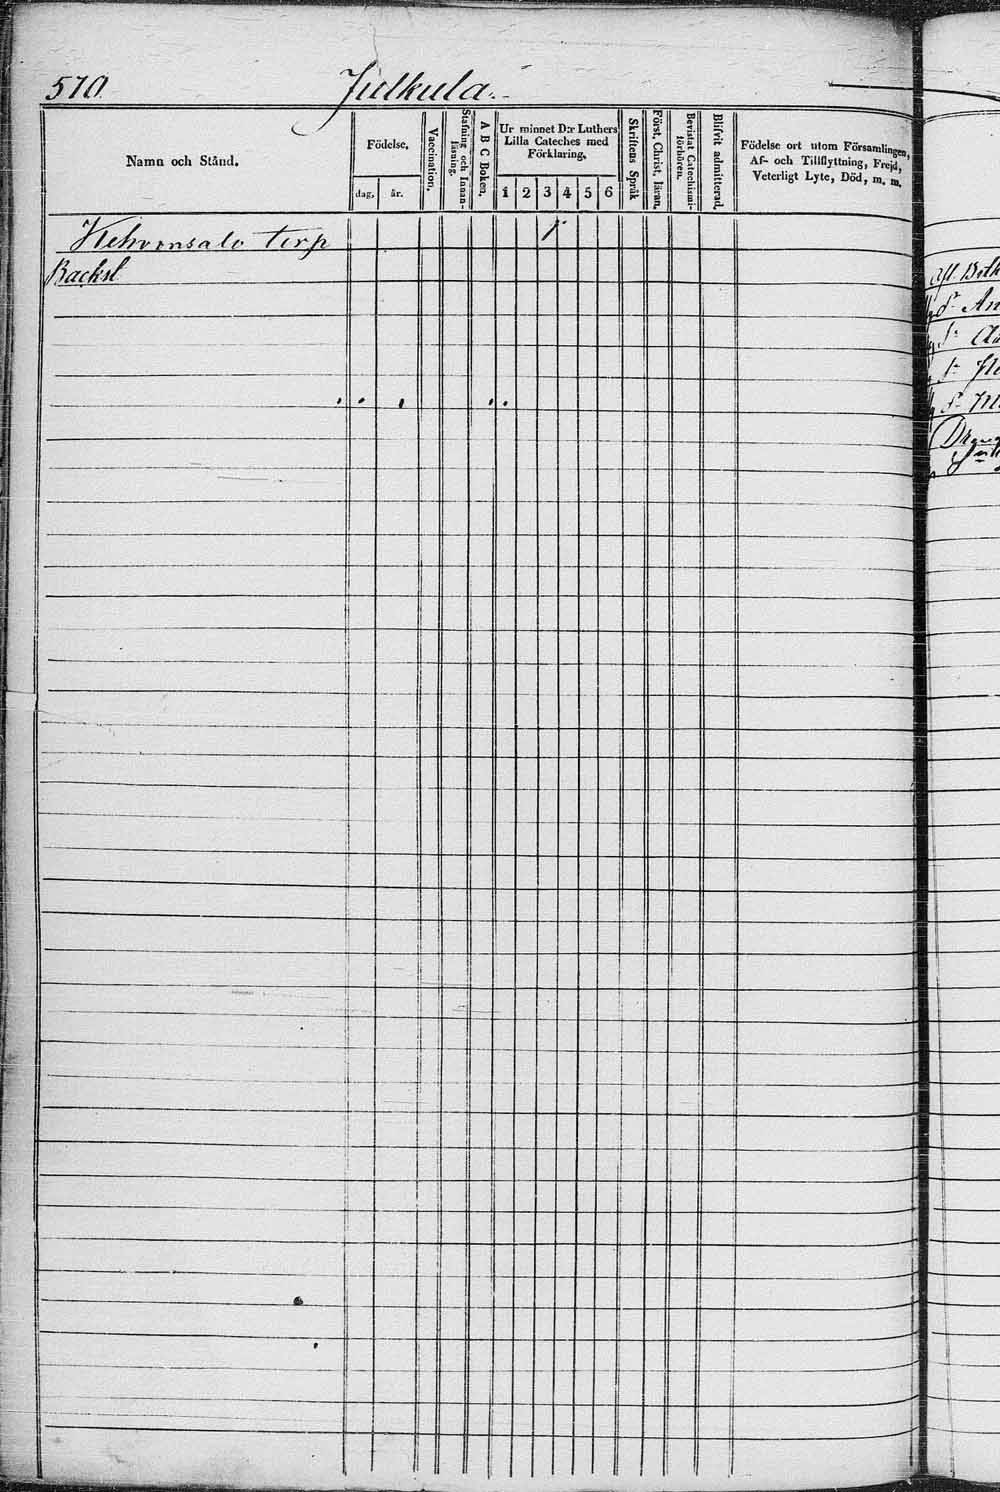 510.
Julkula.
Namn och Stånd.
Födelse.
dag. år.
Vaccination.
Stafning och Innan-
läsning.
A B C Boken.
Ur minnet D:r Luthers
Lilla Cateches med
Förklaring.
1 2 3 4 5 6
Skriftens Språk
Först. Christ. läran.
Bevistat Catechismi-
förhören.
Blifvit admitterad.
Födelse ort utom Församlingen,
Af- och Tillflyttning, Frejd,
Veterligt Lyte, Död, m. m.
torp
Backst